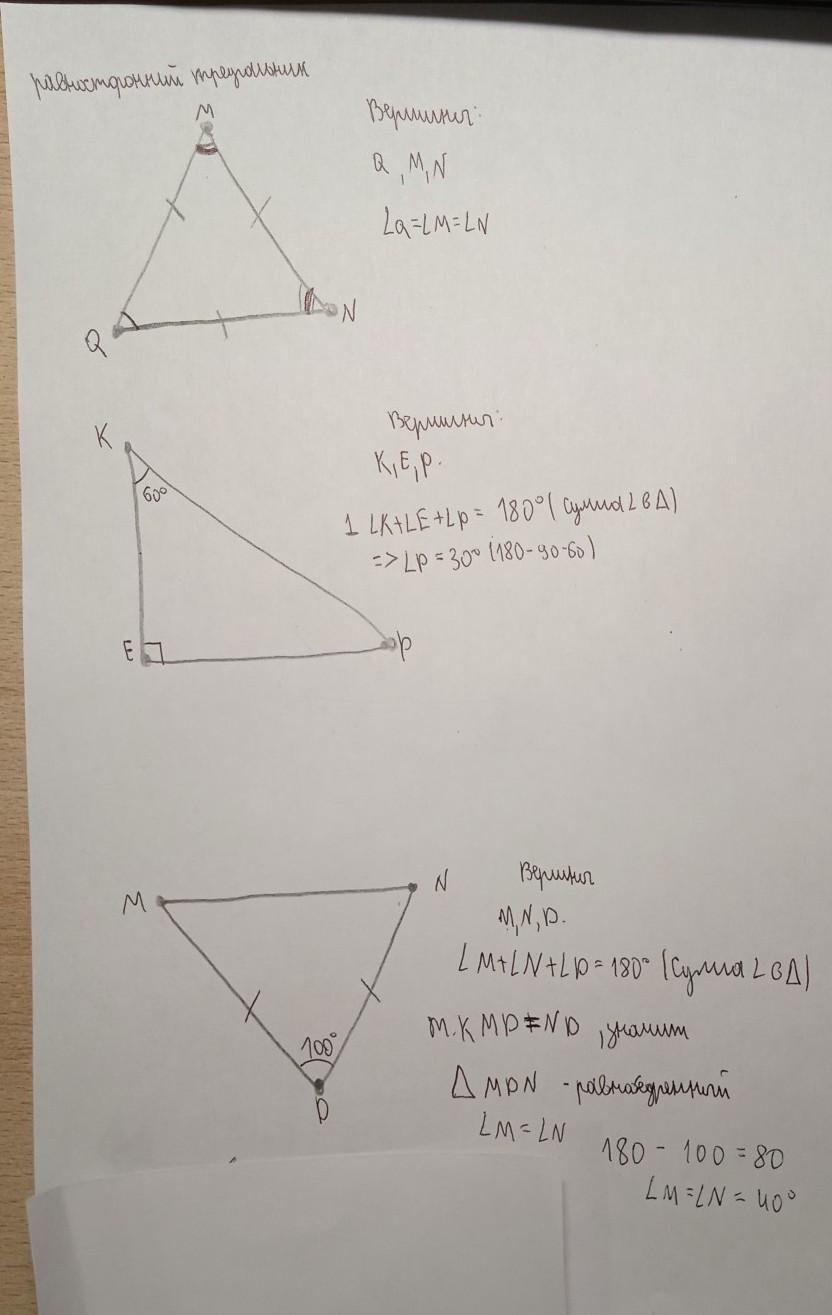 равносторонний треугольник
M
Q
N
Вершины:
Q, M, N
∠Q=∠M=∠N
K
60°
E
P
Вершины:
K, E, P.
1 ∠K+∠E+∠P = 180° (сумма ∠ в Δ)
=> ∠P = 30° (180-90-60)
M
N
100°
D
Вершины
M, N, D.
∠M+∠N+∠D = 180° (сумма ∠ в Δ)
т.к MD = ND, значит
Δ MDN - равнобедренный
∠M = ∠N
180 - 100 = 80
∠M = ∠N = 40°